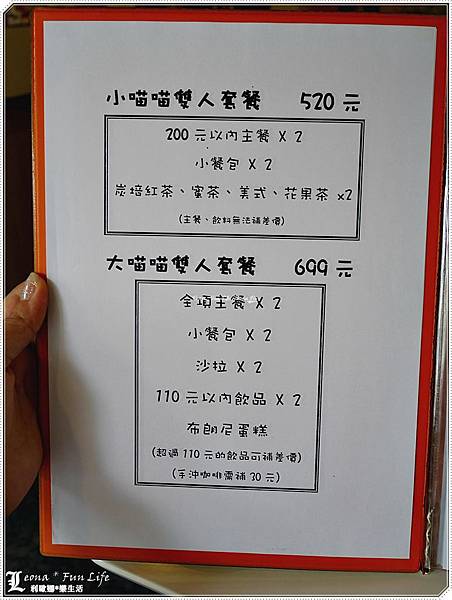 小喵喵雙人套餐 520 元
200 元以內主餐 X 2
小餐包 X 2
炭焙紅茶、蜜茶、美式、花果茶 x2
(主餐、飲料無法補差價)
大喵喵雙人套餐 699 元
全項主餐 X 2
小餐包 X 2
沙拉 X 2
110 元以內飲品 X 2
布朗尼蛋糕
(超過 110 元的飲品可補差價)
(手沖咖啡需補 30 元)
Leona * Fun Life